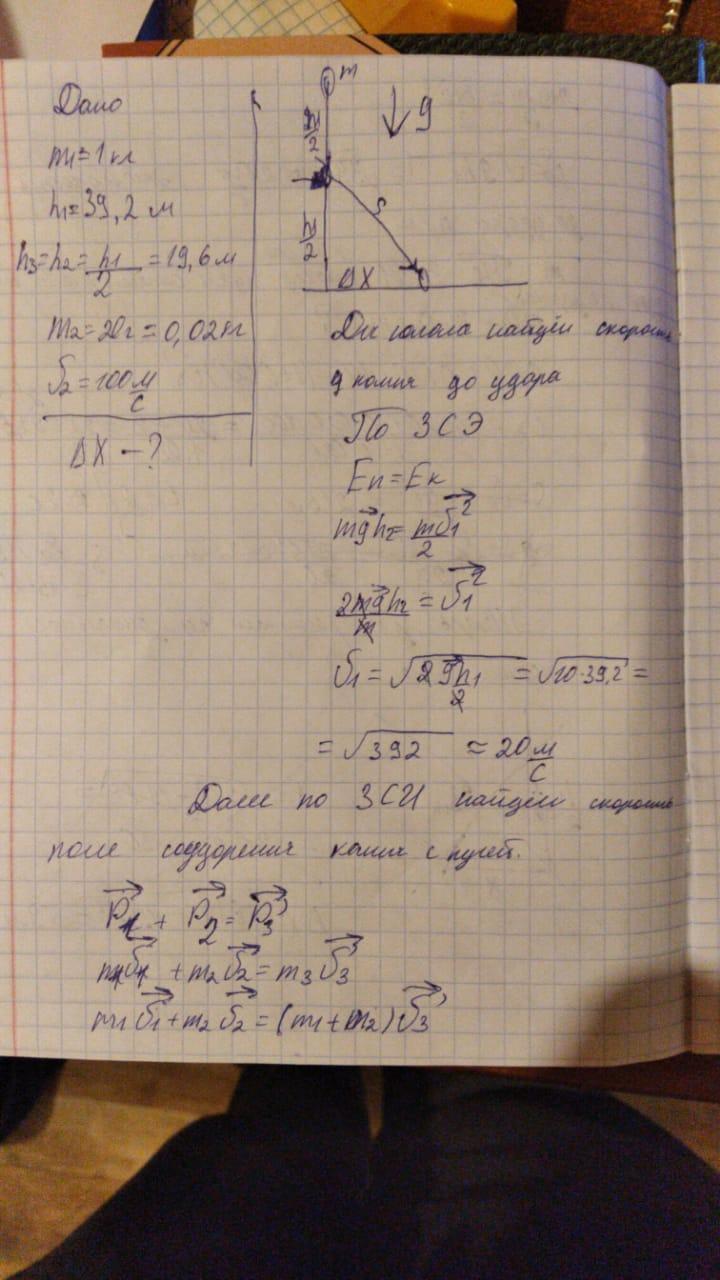 Дано
m1=1 кг
h1=39,2 м
h3=h2=h1/2=19,6м
m2=20г=0,02кг
v2=100 м/с
ΔX-?
m
g
h/2
h/2
S
ΔX
найдём скорость
до удара
По ЗСЭ
Eп=Eк
mgh2=mv1²/2
2mgh2/m=v1²
v1=√2gh1/2=√10·39,2=
=√392≈20 м/с
Далее по ЗСИ найдём скорость
после соударения камня с пулей.
P1+P2=P3
m1v1+m2v2=m3v3
m1v1+m2v2=(m1+m2)v3